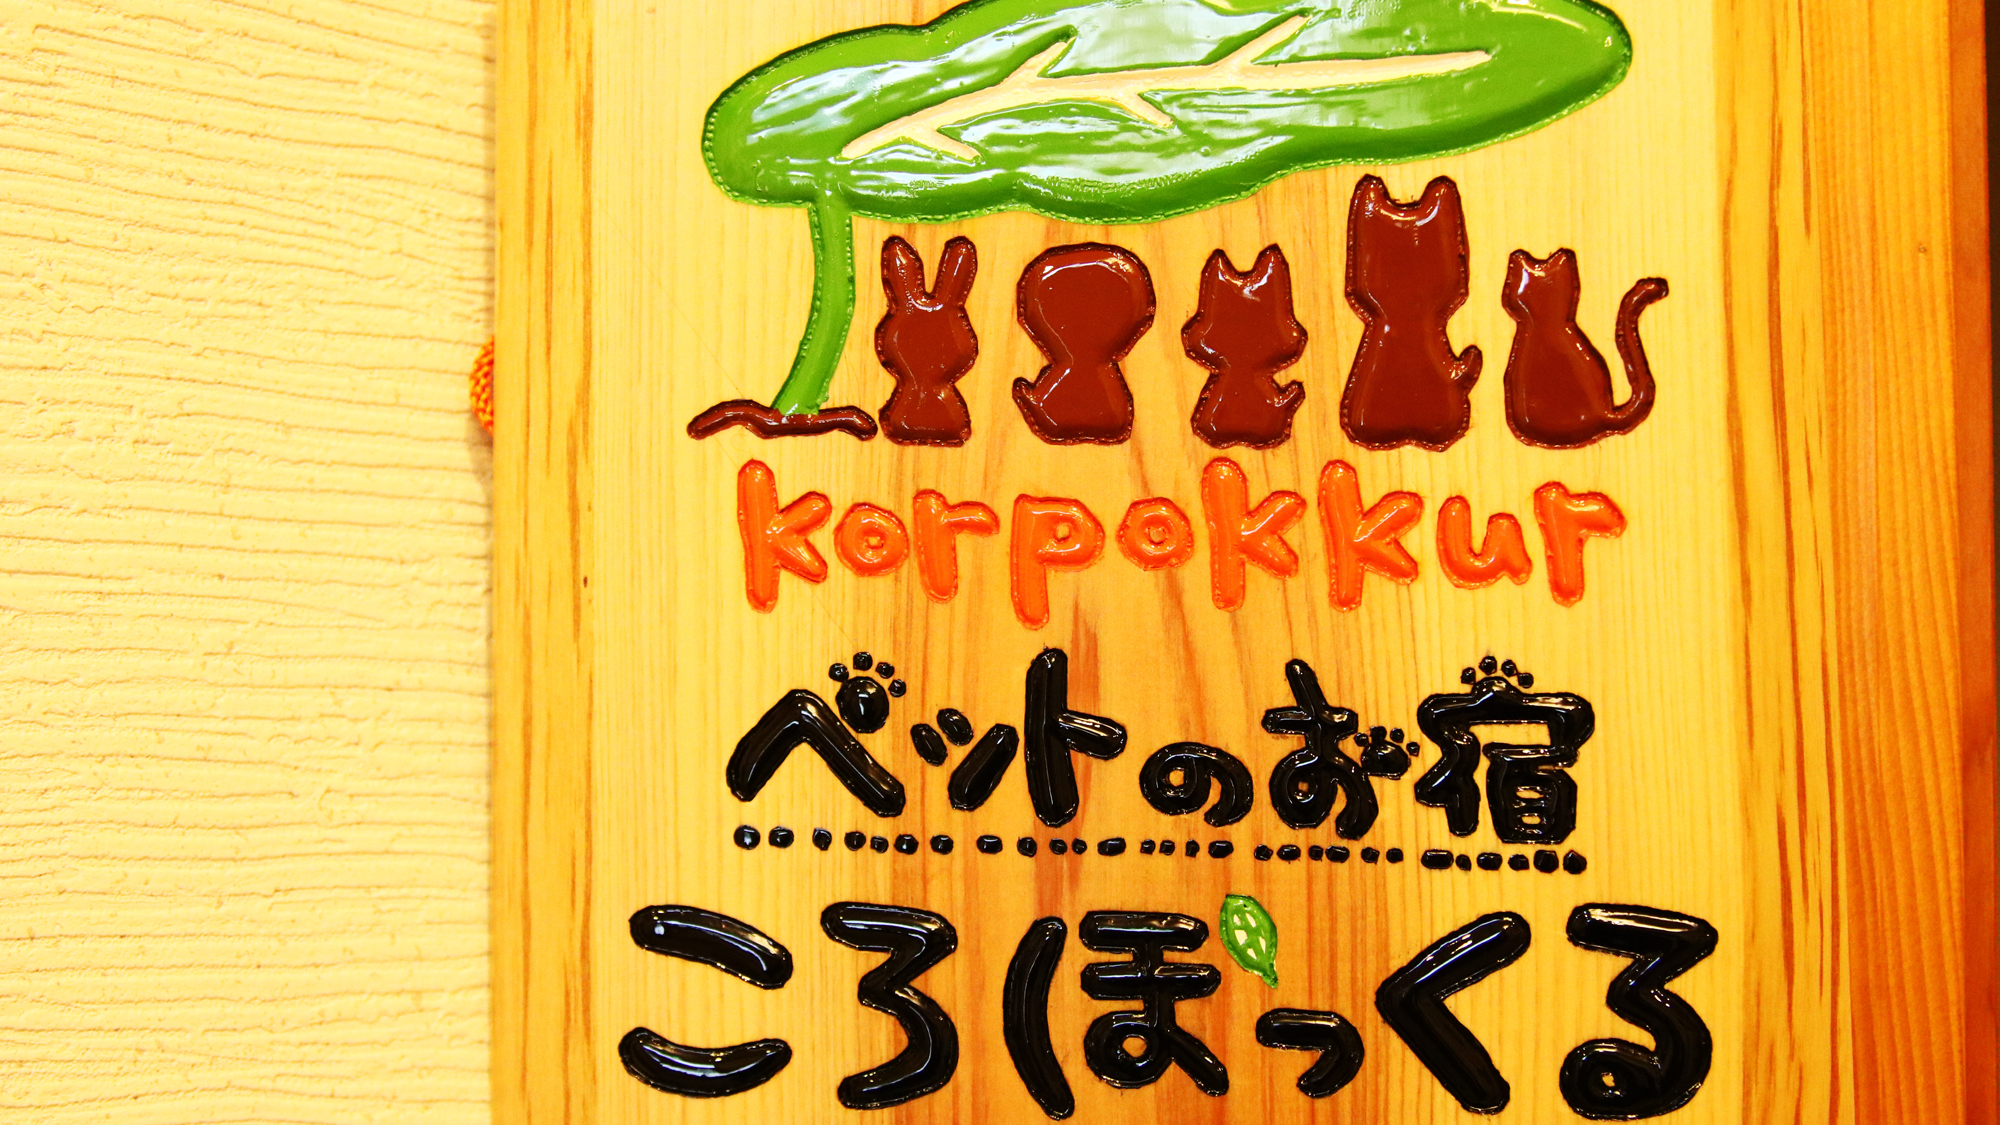 korpokkur
ペットのお宿
ころぽっくる